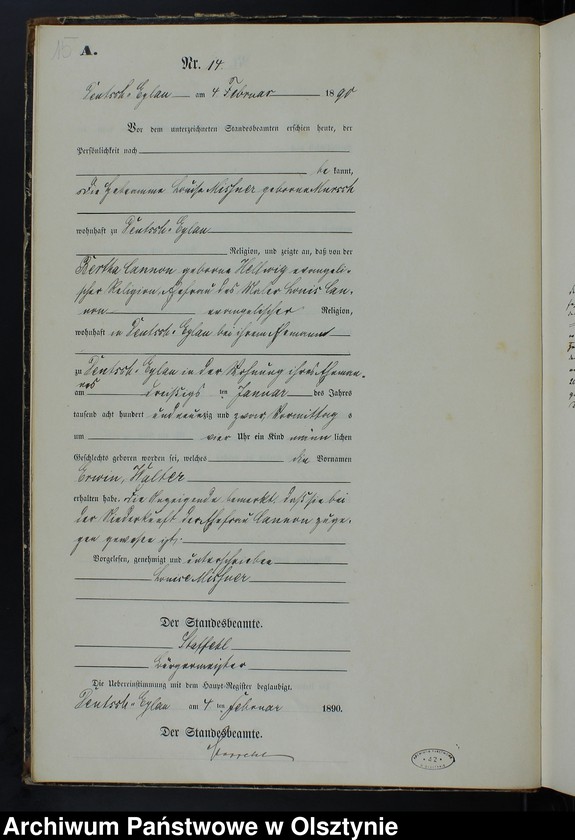 15
A.
Nr. 14.
Deutsch-Eylau am 4. Februar 1890
Vor dem unterzeichneten Standesbeamten erschien heute, der
Persönlichkeit nach
be kannt,
die Hebamme Louise Mishner geborne
wohnhaft zu Deutsch-Eylau
Religion, und zeigte an, daß von der
Bertha Cannon geborne Hellwig evangeli-
scher Religion, Ehefrau des Maler Louis Can-
non evangelischer Religion,
wohnhaft in Deutsch-Eylau bei ihrem Ehemann
zu Deutsch-Eylau in der Wohnung ihres Eheman-
nes
am dreißigs ten Januar des Jahres
tausend acht hundert und neunzig und zwar Vormittag s
um vier Uhr ein Kind männ lichen
Geschlechts geboren worden sei, welches die Vornamen
Erwin, Walter
erhalten habe. Die Anzeigende bemerkt, daß sie bei
der Niederkunft der Ehefrau Cannon zuge-
gen gewesen ist.
Vorgelesen, genehmigt und unterschrieben
Louise Mishner
Der Standesbeamte.
Staffehl
Bürgermeister
Die Uebereinstimmung mit dem Haupt-Register beglaubigt.
Deutsch-Eylau am 4 ten Februar 1890.
Der Standesbeamte.
Staffehl
42
Archiwum Państwowe w Olsztynie